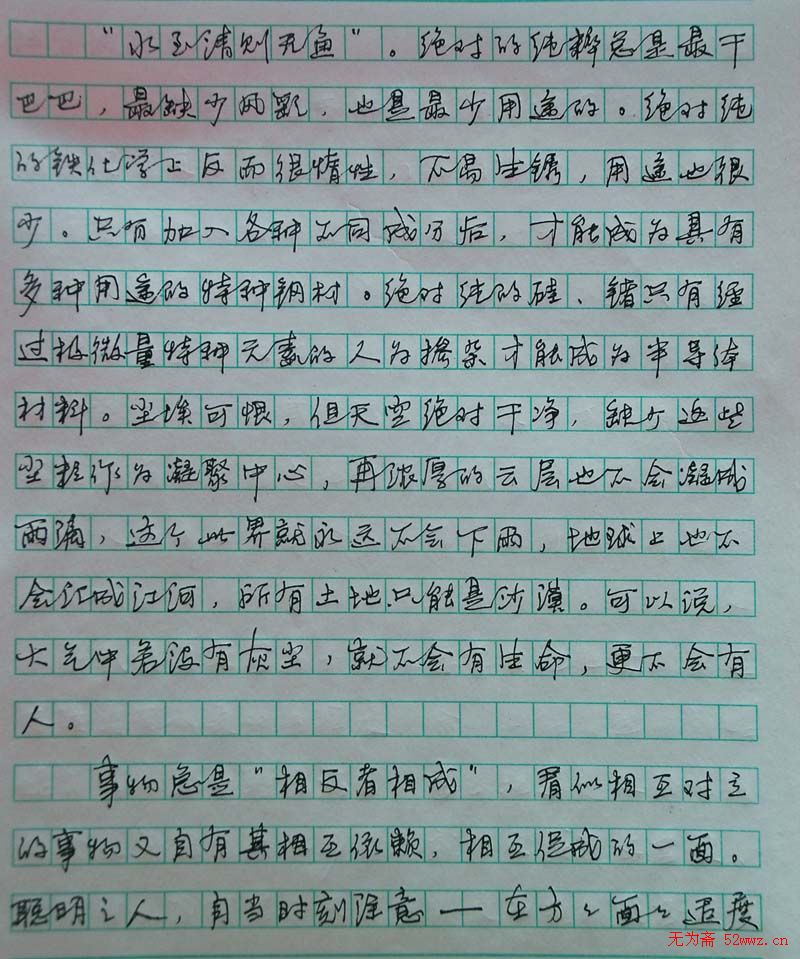 “水至清则无鱼”。绝对的纯粹总是最干
巴巴，最缺少风韵，也是最少用途的。绝对纯
的铁化学上反而很惰性，不易生锈，用途也很
少。只有加入各种不同成分后，才能成为具有
多种用途的特种钢材。绝对纯的硅、锗只有经
过极微量特种元素的人为掺杂才能成为半导体
材料。尘埃可恨，但天空绝对干净，缺少这些
尘粒作为凝聚中心，再浓厚的云层也不会凝成
雨滴，这个世界就永远不会下雨，地球上也不
会汇成江河，所有土地只能是沙漠。可以说，
大气中若没有灰尘，就不会有生命，更不会有
人。
事物总是“相反者相成”，看似相互对立
的事物又自有其相互依赖，相互促成的一面。
聪明之人，自当时刻注意——在方方面面适度
无为斋 52wwz.cn